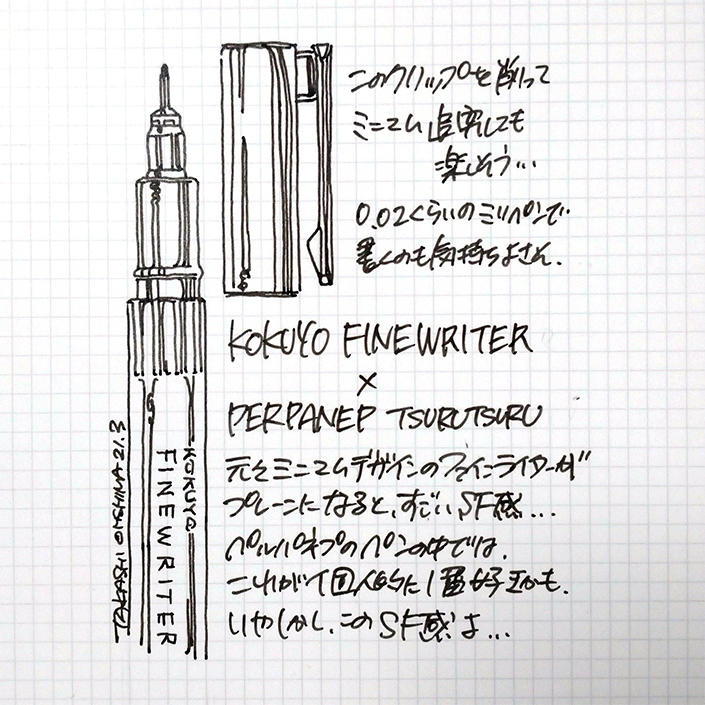 このクリップを削って
ミニマム追究しても
楽しそう…
0.02くらいのミリペンで
書くのも気持ちよさん.
KOKUYO FINEWRITER
×
PERPANEP TSURUTSURU
元々ミニマムデザインのファインライターが
プレーンになると、すごいSF感...
ペルパネプのペンの中では、
これが個人的に1番好きかも.
いやしかし、このSF感よ...
KOKUYO
FINEWRITER
21.3